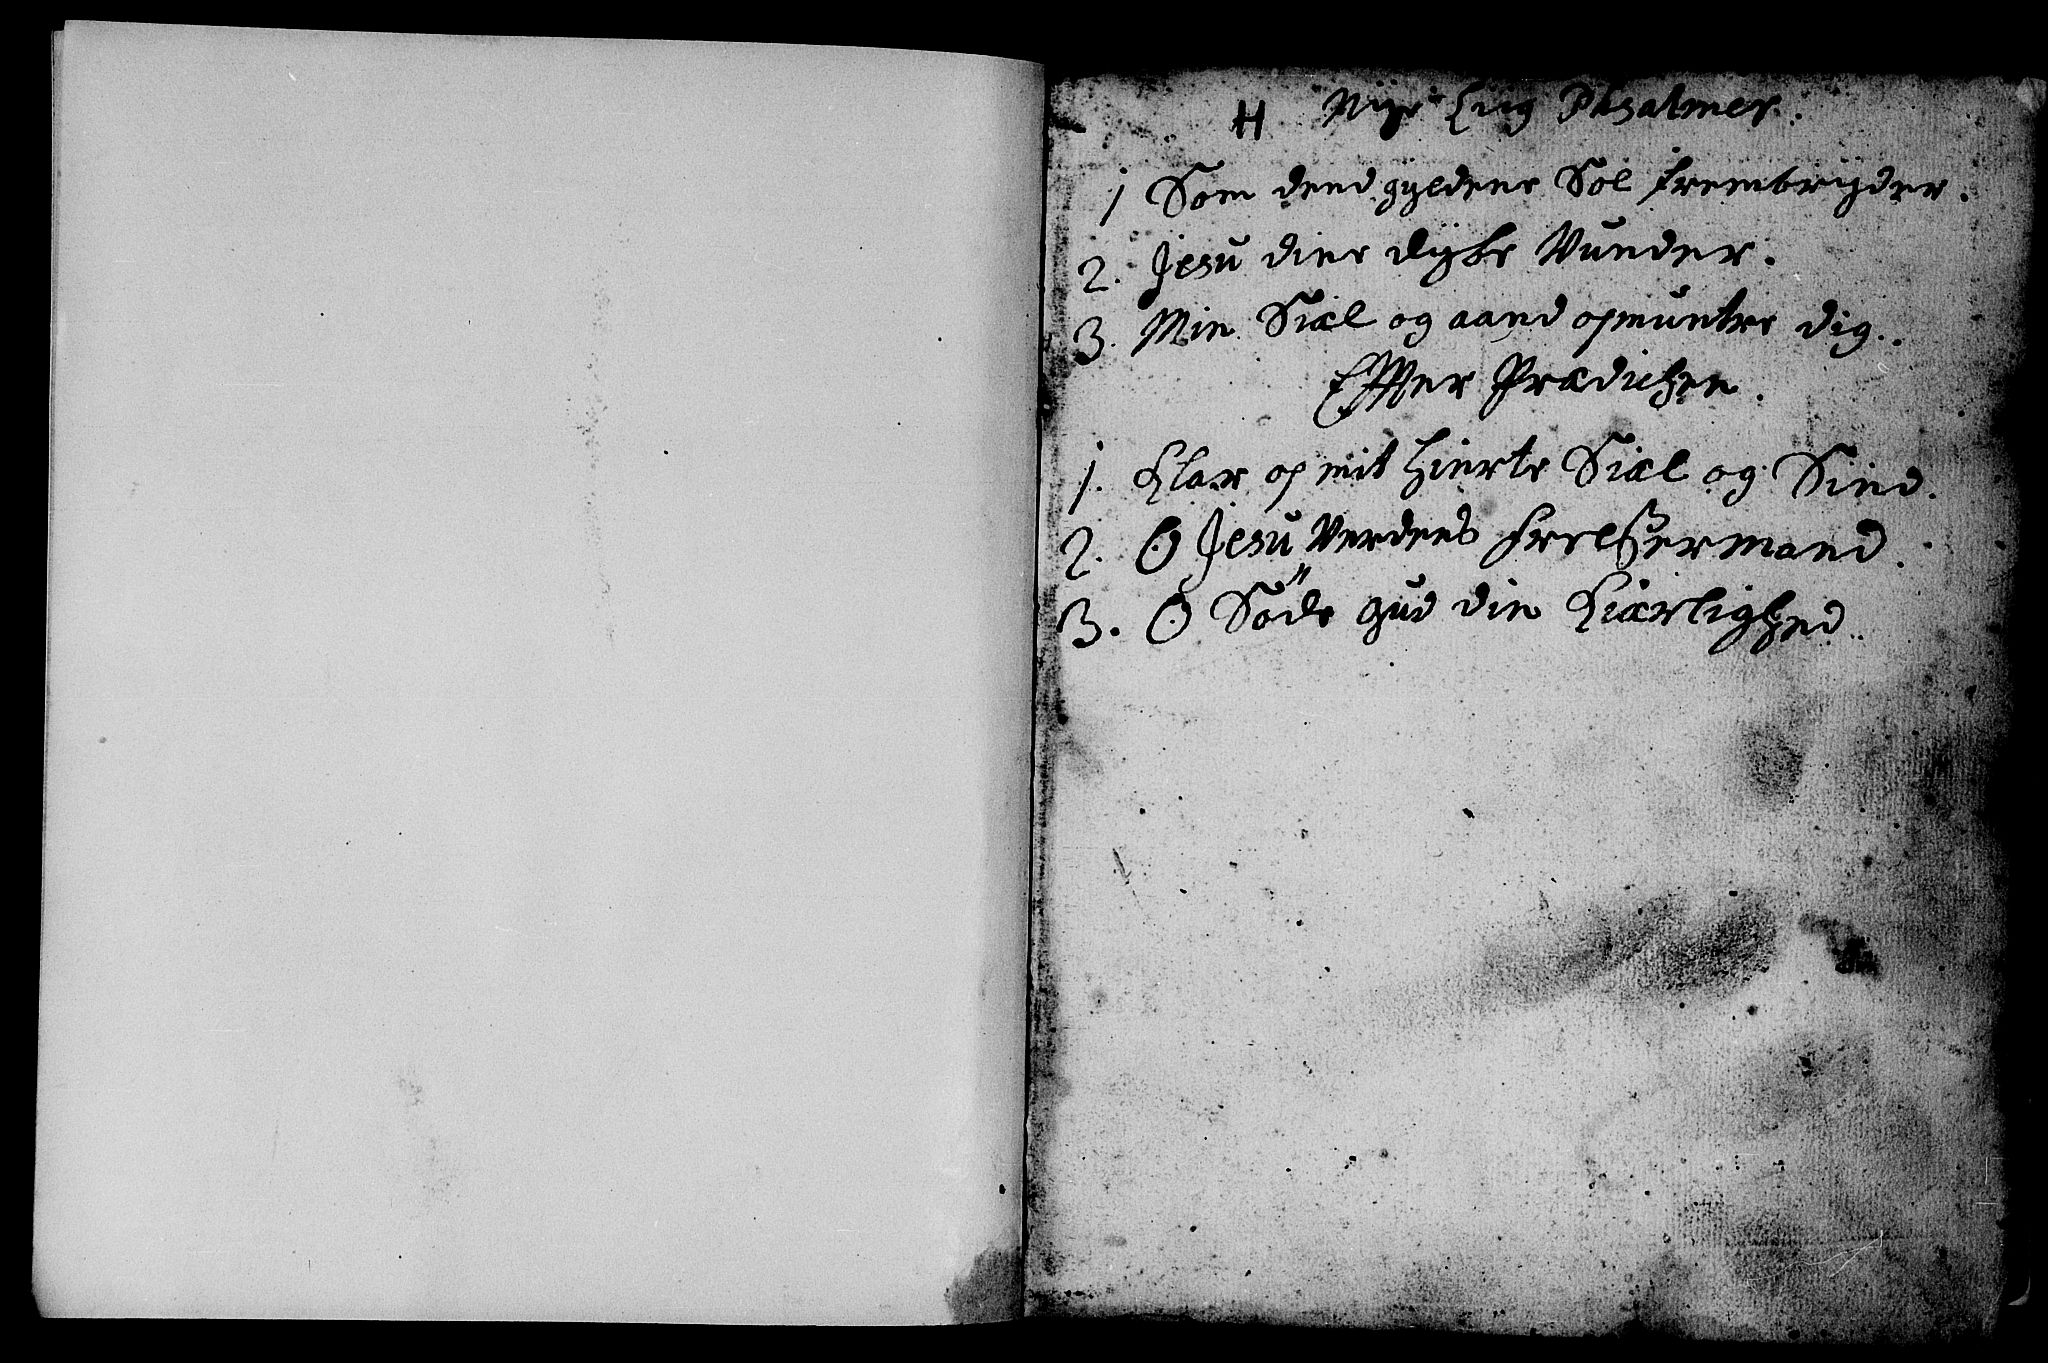 H Nÿe Liig Psalmer.
1 Som dend gyldene Sol frembrÿder.
2. Jesu dine dÿbe Vunder.
3. Min Siæl og aand opmuntre dig.
Effter Prædichen.
1. Klar op mit hierte Siæl og Sind.
2. O Jesu Verdens frelßermand.
3. O Söde gud din Kiærlighed.